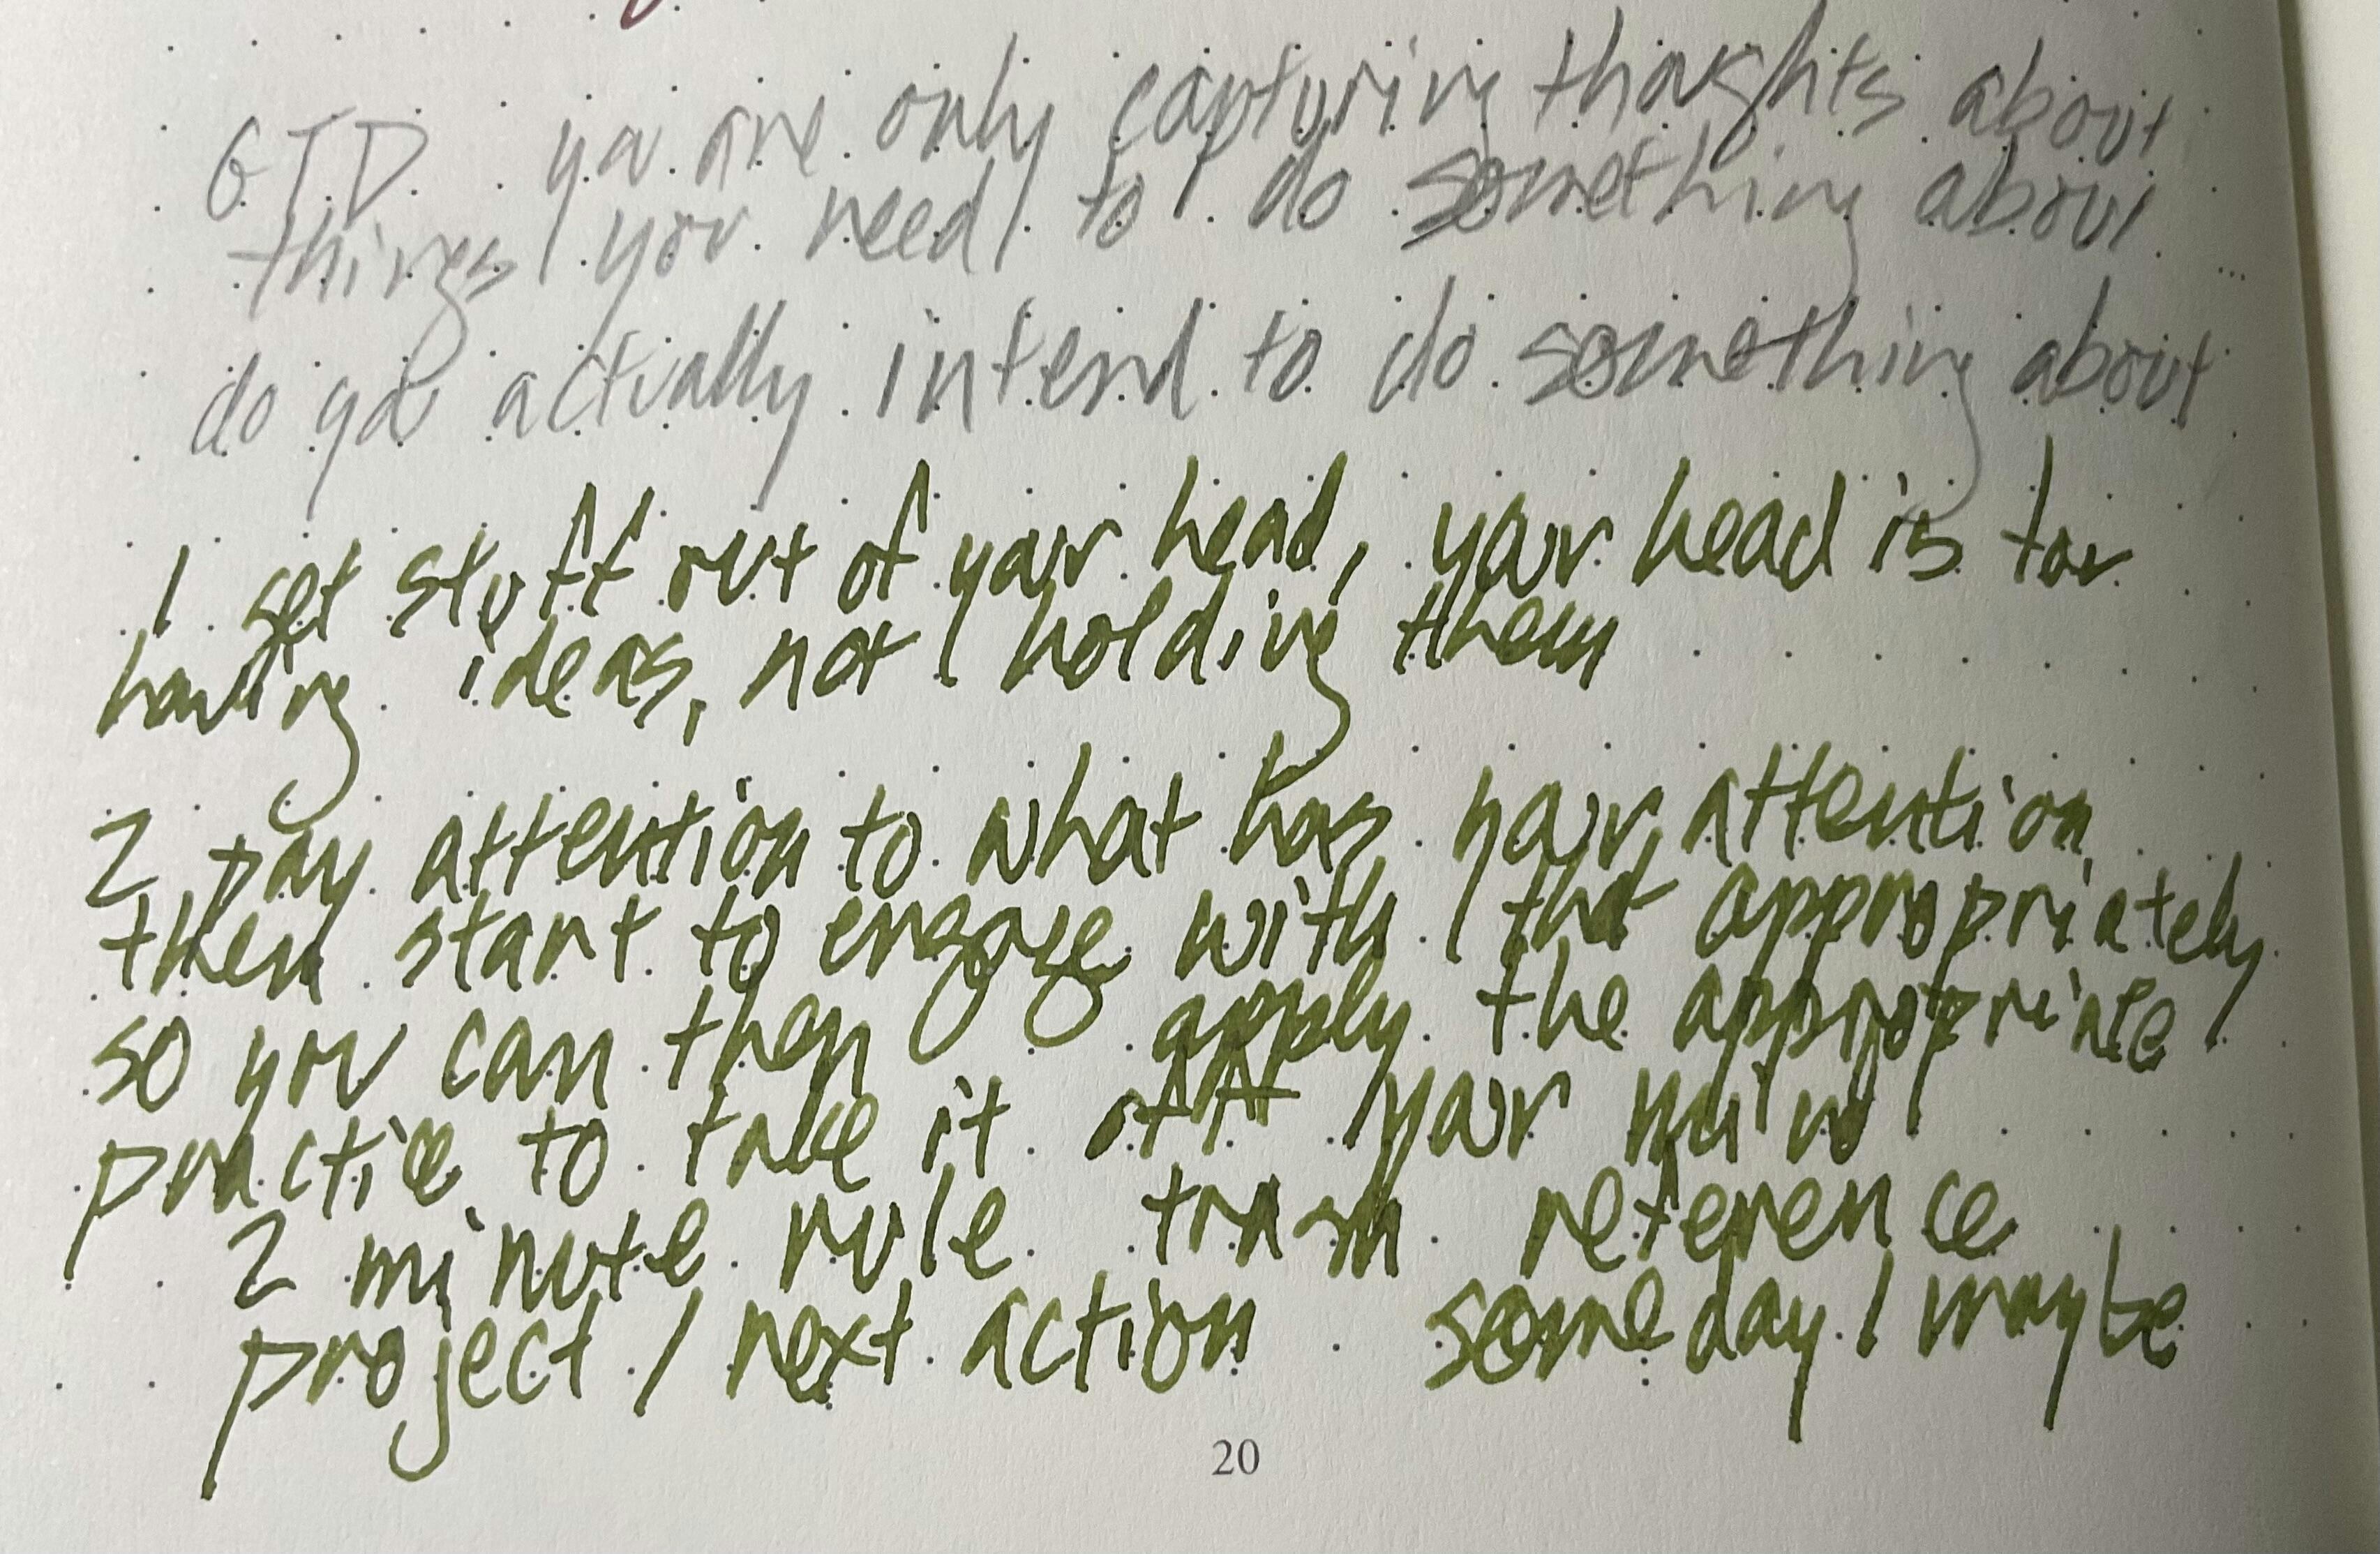 GTD you are only capturing thoughts about
things you need to do something about
do you actually intend to do something about
1 get stuff out of your head, your head is for
having ideas, not holding them
2 pay attention to what has your attention
then start to engage with that appropriately
so you can then apply the appropriate
practice to take it off your mind
2 minute rule trash reference
project / next action someday / maybe
20